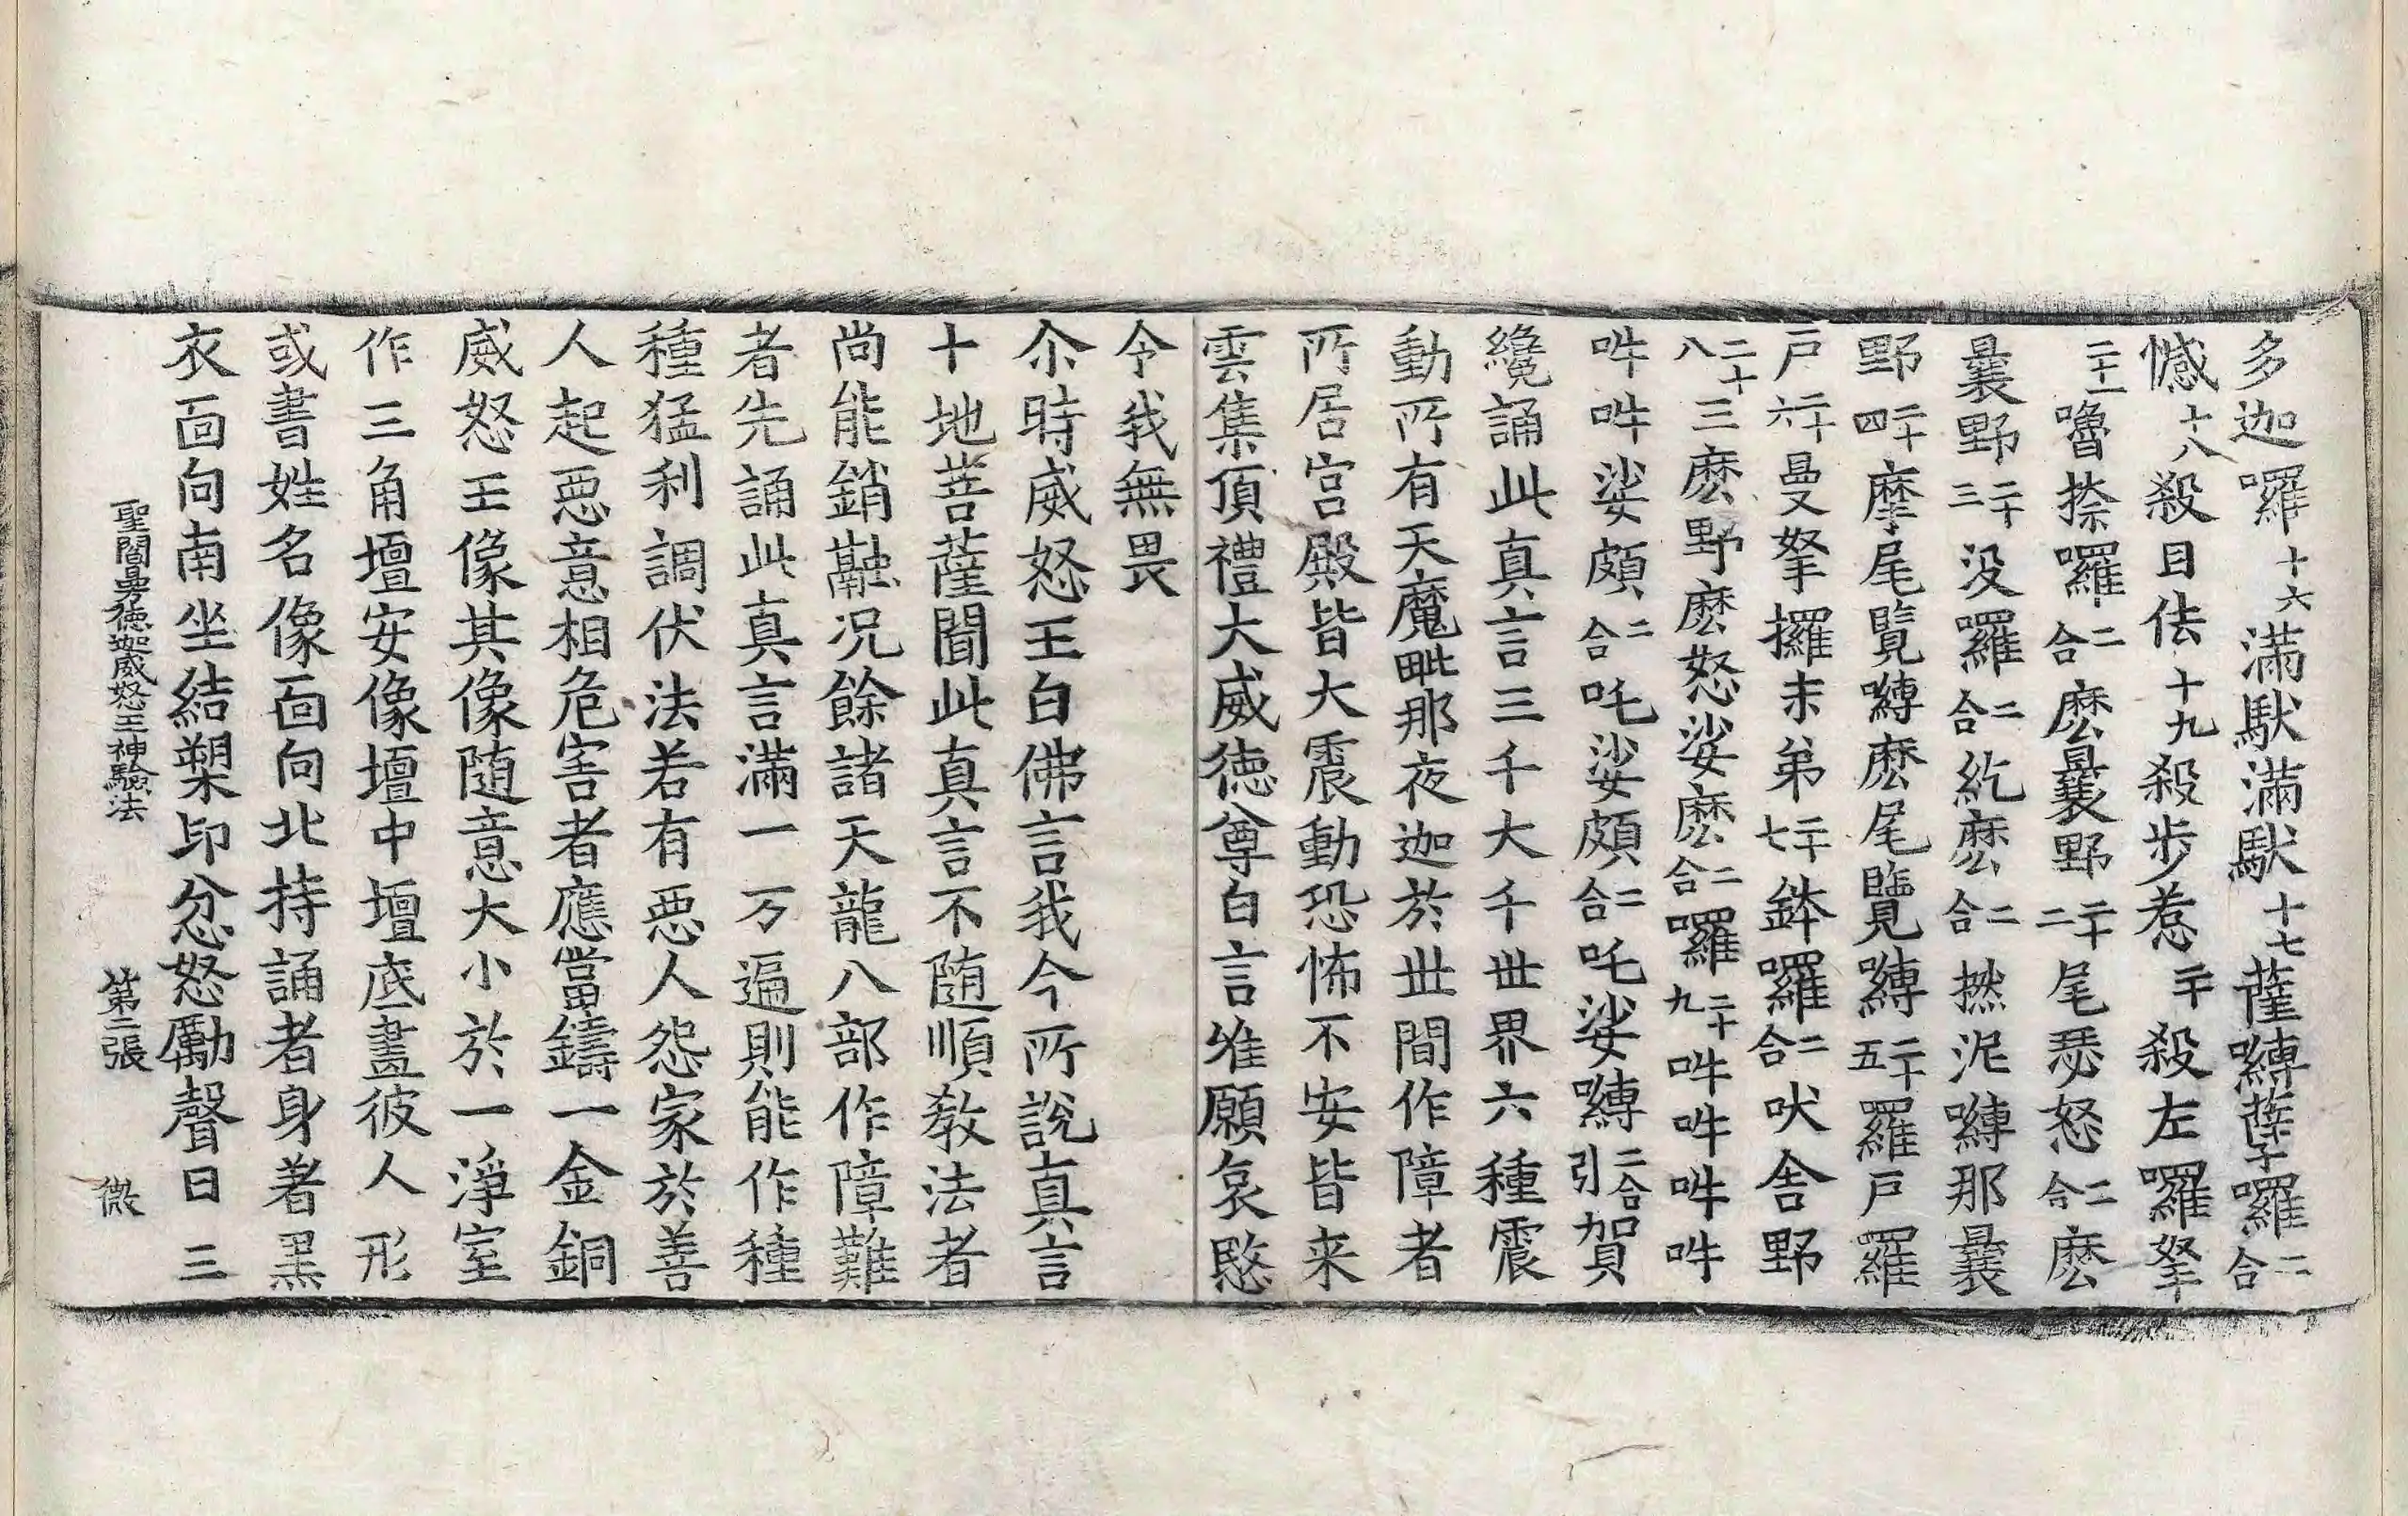 多迦囉十六滿馱滿馱十七薩嚩孽囉二合
憾十八殺目佉十九殺步惹二十殺左囉拏
二十一嚕捺囉二合麽曩野二十二尾瑟怒二合麽
曩野二十三没羅二合紇麽二合撚泥嚩那曩
野二十四摩尾覽嚩麽尾覽嚩二十五羅戸羅
戸二十六曼拏攞末弟二十七鉢囉二合吠舍野
二十八三麽野麽怒娑麽二合囉二十九吽吽吽吽
吽吽娑頗二合吒娑頗二合吒娑嚩二合引賀
纔誦此真言三千大千世界六種震
動所有天魔毗那夜迦於世間作障者
所居宫殿皆大震動恐怖不安皆来
雲集頂禮大威德尊白言唯願哀愍
令我無畏
尒時威怒王白佛言我今所說真言
十地菩薩聞此真言不随順教法者
尚能銷融况餘諸天龍八部作障難
者先誦此真言滿一万遍則能作種
種猛利調伏法若有惡人怨家於善
人起惡意相危害者應當鑄一金銅
威怒王像其像随意大小於一淨室
作三角壇安像壇中壇底畫彼人形
或書姓名像面向北持誦者身著黑
衣面向南坐結槊印忿怒勵聲日三
聖閻曼德迦威怒王神驗法 第二張 微